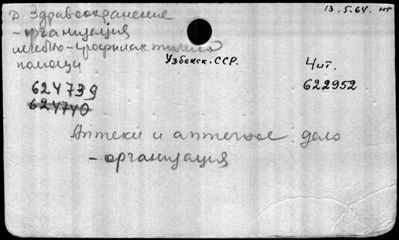 Д Здравоохранение 13.5.64. НР
- организация
лечебно-профилактической
помощи Узбекск. ССР. Чит.
624739 622952
624740
Аптеки и аптечное дело
- организация